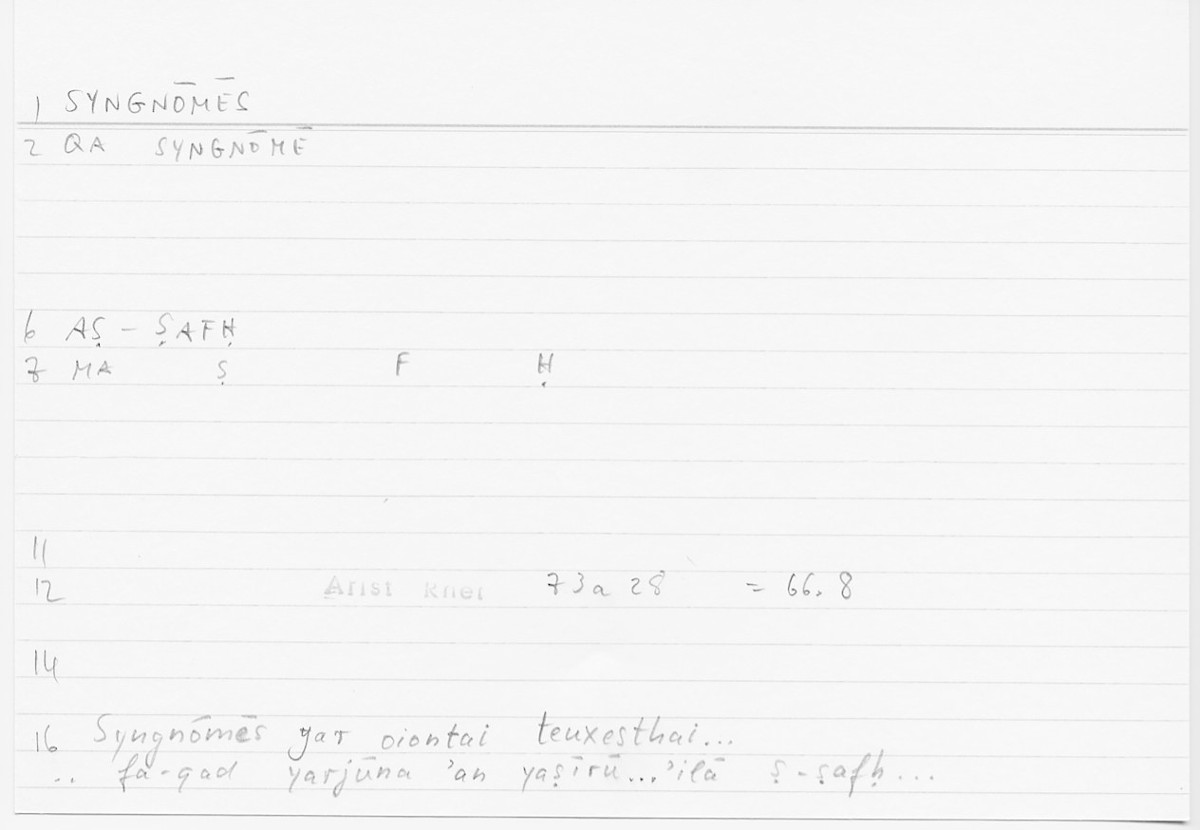 1 SYNGNŌMĒS
2 QA SYNGNŌMĒ
6 AṢ - ṢAFḤ
7 MA Ṣ F Ḥ
11
12 Arist Rhet 73a 28 = 66.8
14
16 Syngnōmēs gar oiontai teuxesthai...
.. fa-qad yarjūna 'an yaṣīrū...'ilā ṣ-ṣafḥ...